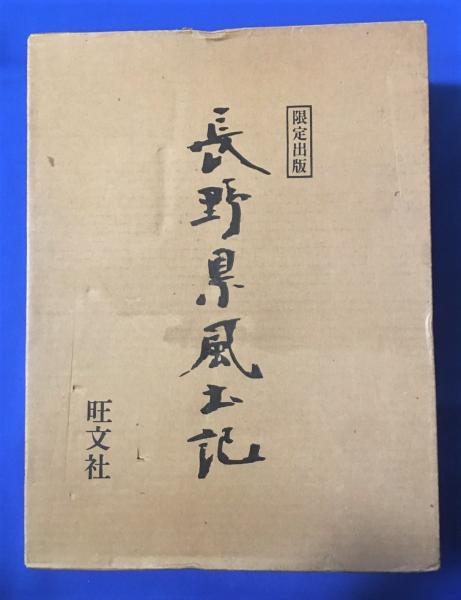 限定出版
長野県風土記
旺文社